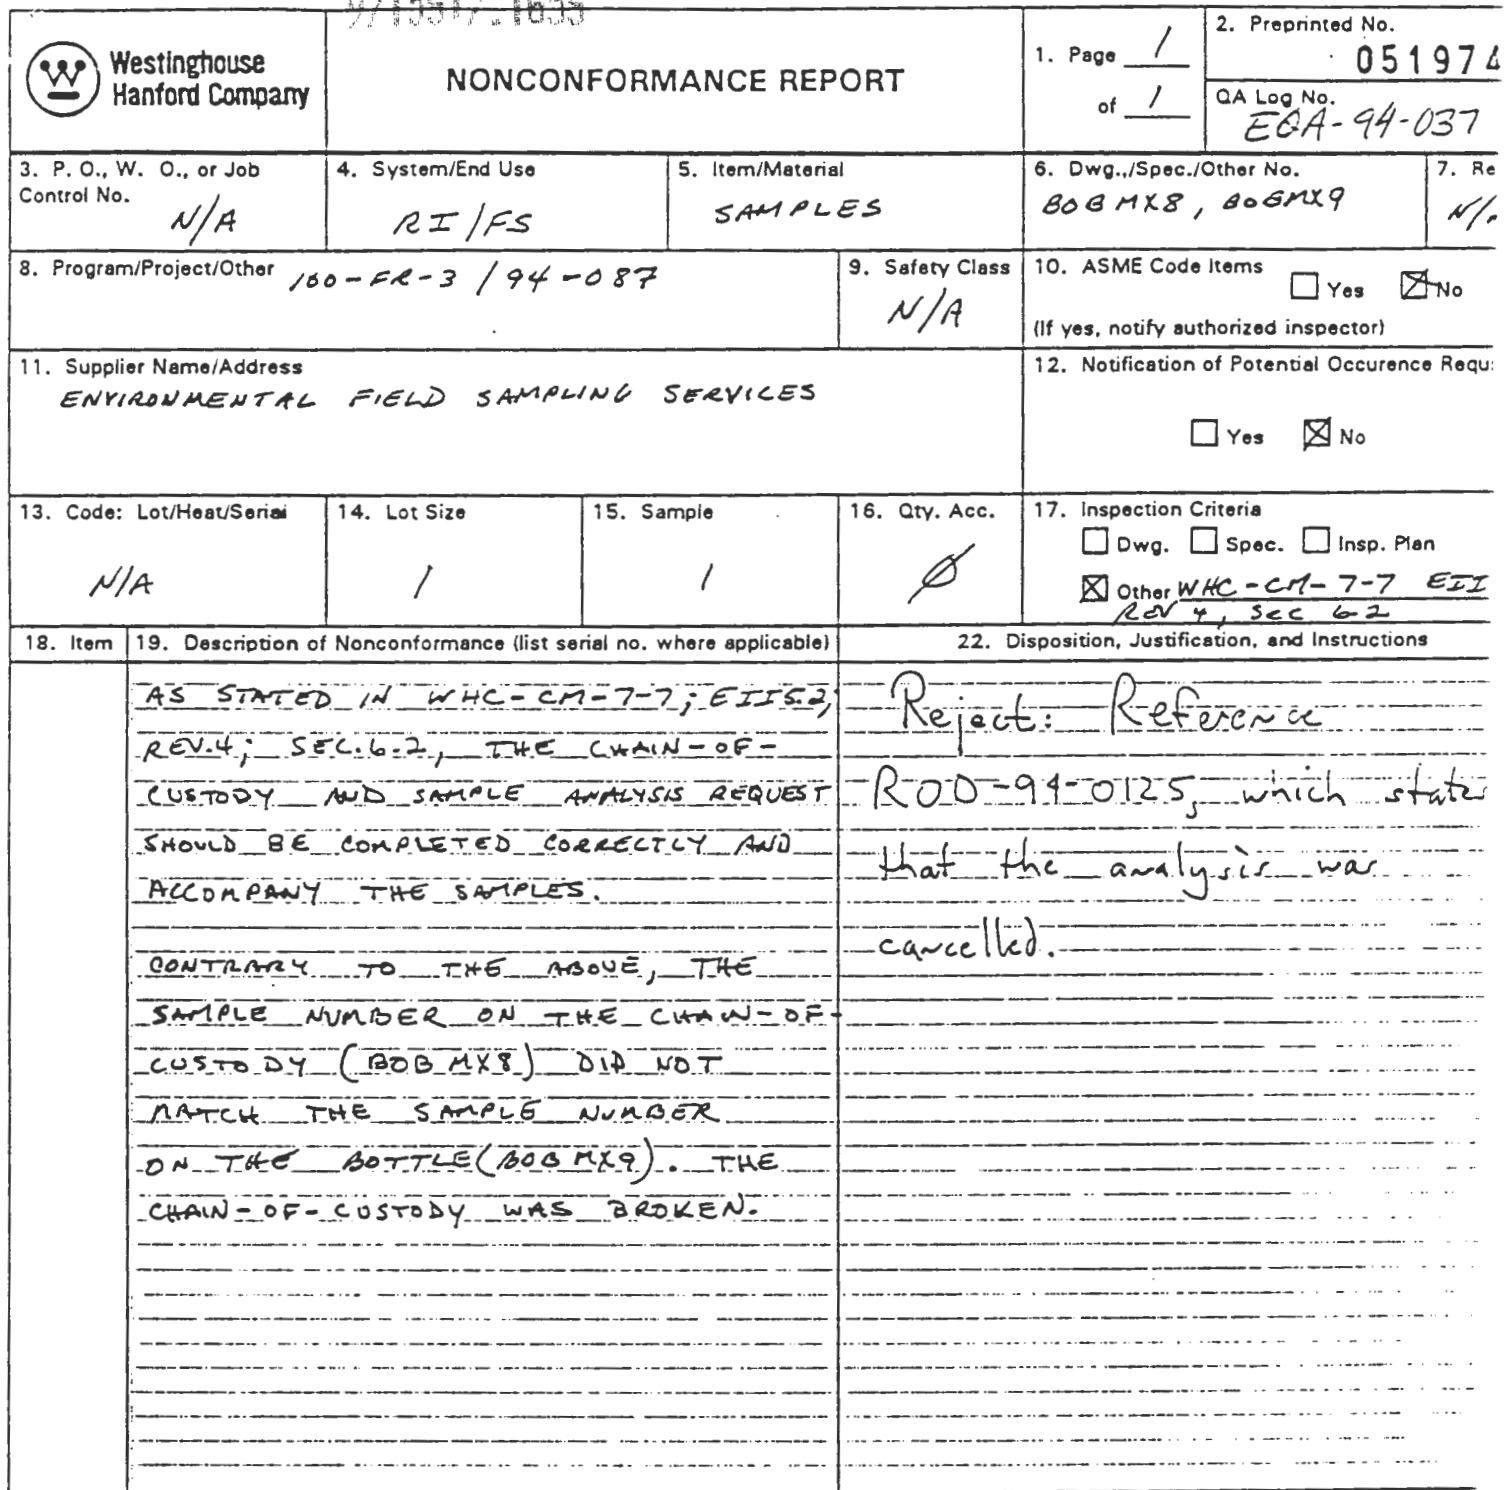 Westinghouse
Hanford Company
NONCONFORMANCE REPORT
1. Page 1
of 1
2. Preprinted No.
051974
QA Log No.
EQA-94-037
3. P. O., W. O., or Job
Control No.
N/A
4. System/End Use
RI/FS
5. Item/Material
SAMPLES
6. Dwg.,/Spec./Other No.
BOBMX8, BOBMX9
7. Re
8. Program/Project/Other 100-FR-3 / 94-087
9. Safety Class
N/A
10. ASME Code Items
Yes No
(If yes, notify authorized inspector)
11. Supplier Name/Address
ENVIRONMENTAL FIELD SAMPLING SERVICES
12. Notification of Potential Occurence Requ
Yes No
13. Code: Lot/Heat/Serial
N/A
14. Lot Size
1
15. Sample
1
16. Qty. Acc.
Ø
17. Inspection Criteria
Dwg. Spec. Insp. Plan
Other WHC-CM-7-7 EII
REV 4, SEC 6.2
18. Item
19. Description of Nonconformance (list serial no. where applicable)
AS STATED IN WHC-CM-7-7; EII 5.2,
REV.4; SEC.6.2, THE CHAIN-OF-
CUSTODY AND SAMPLE ANALYSIS REQUEST
SHOULD BE COMPLETED CORRECTLY AND
ACCOMPANY THE SAMPLES.
CONTRARY TO THE ABOVE, THE
SAMPLE NUMBER ON THE CHAIN-OF-
CUSTODY (BOBMX8) DID NOT
MATCH THE SAMPLE NUMBER
ON THE BOTTLE (BOBMX9). THE
CHAIN-OF-CUSTODY WAS BROKEN.
22. Disposition, Justification, and Instructions
Reject: Reference
ROD-94-0125, which states
that the analysis was
cancelled.